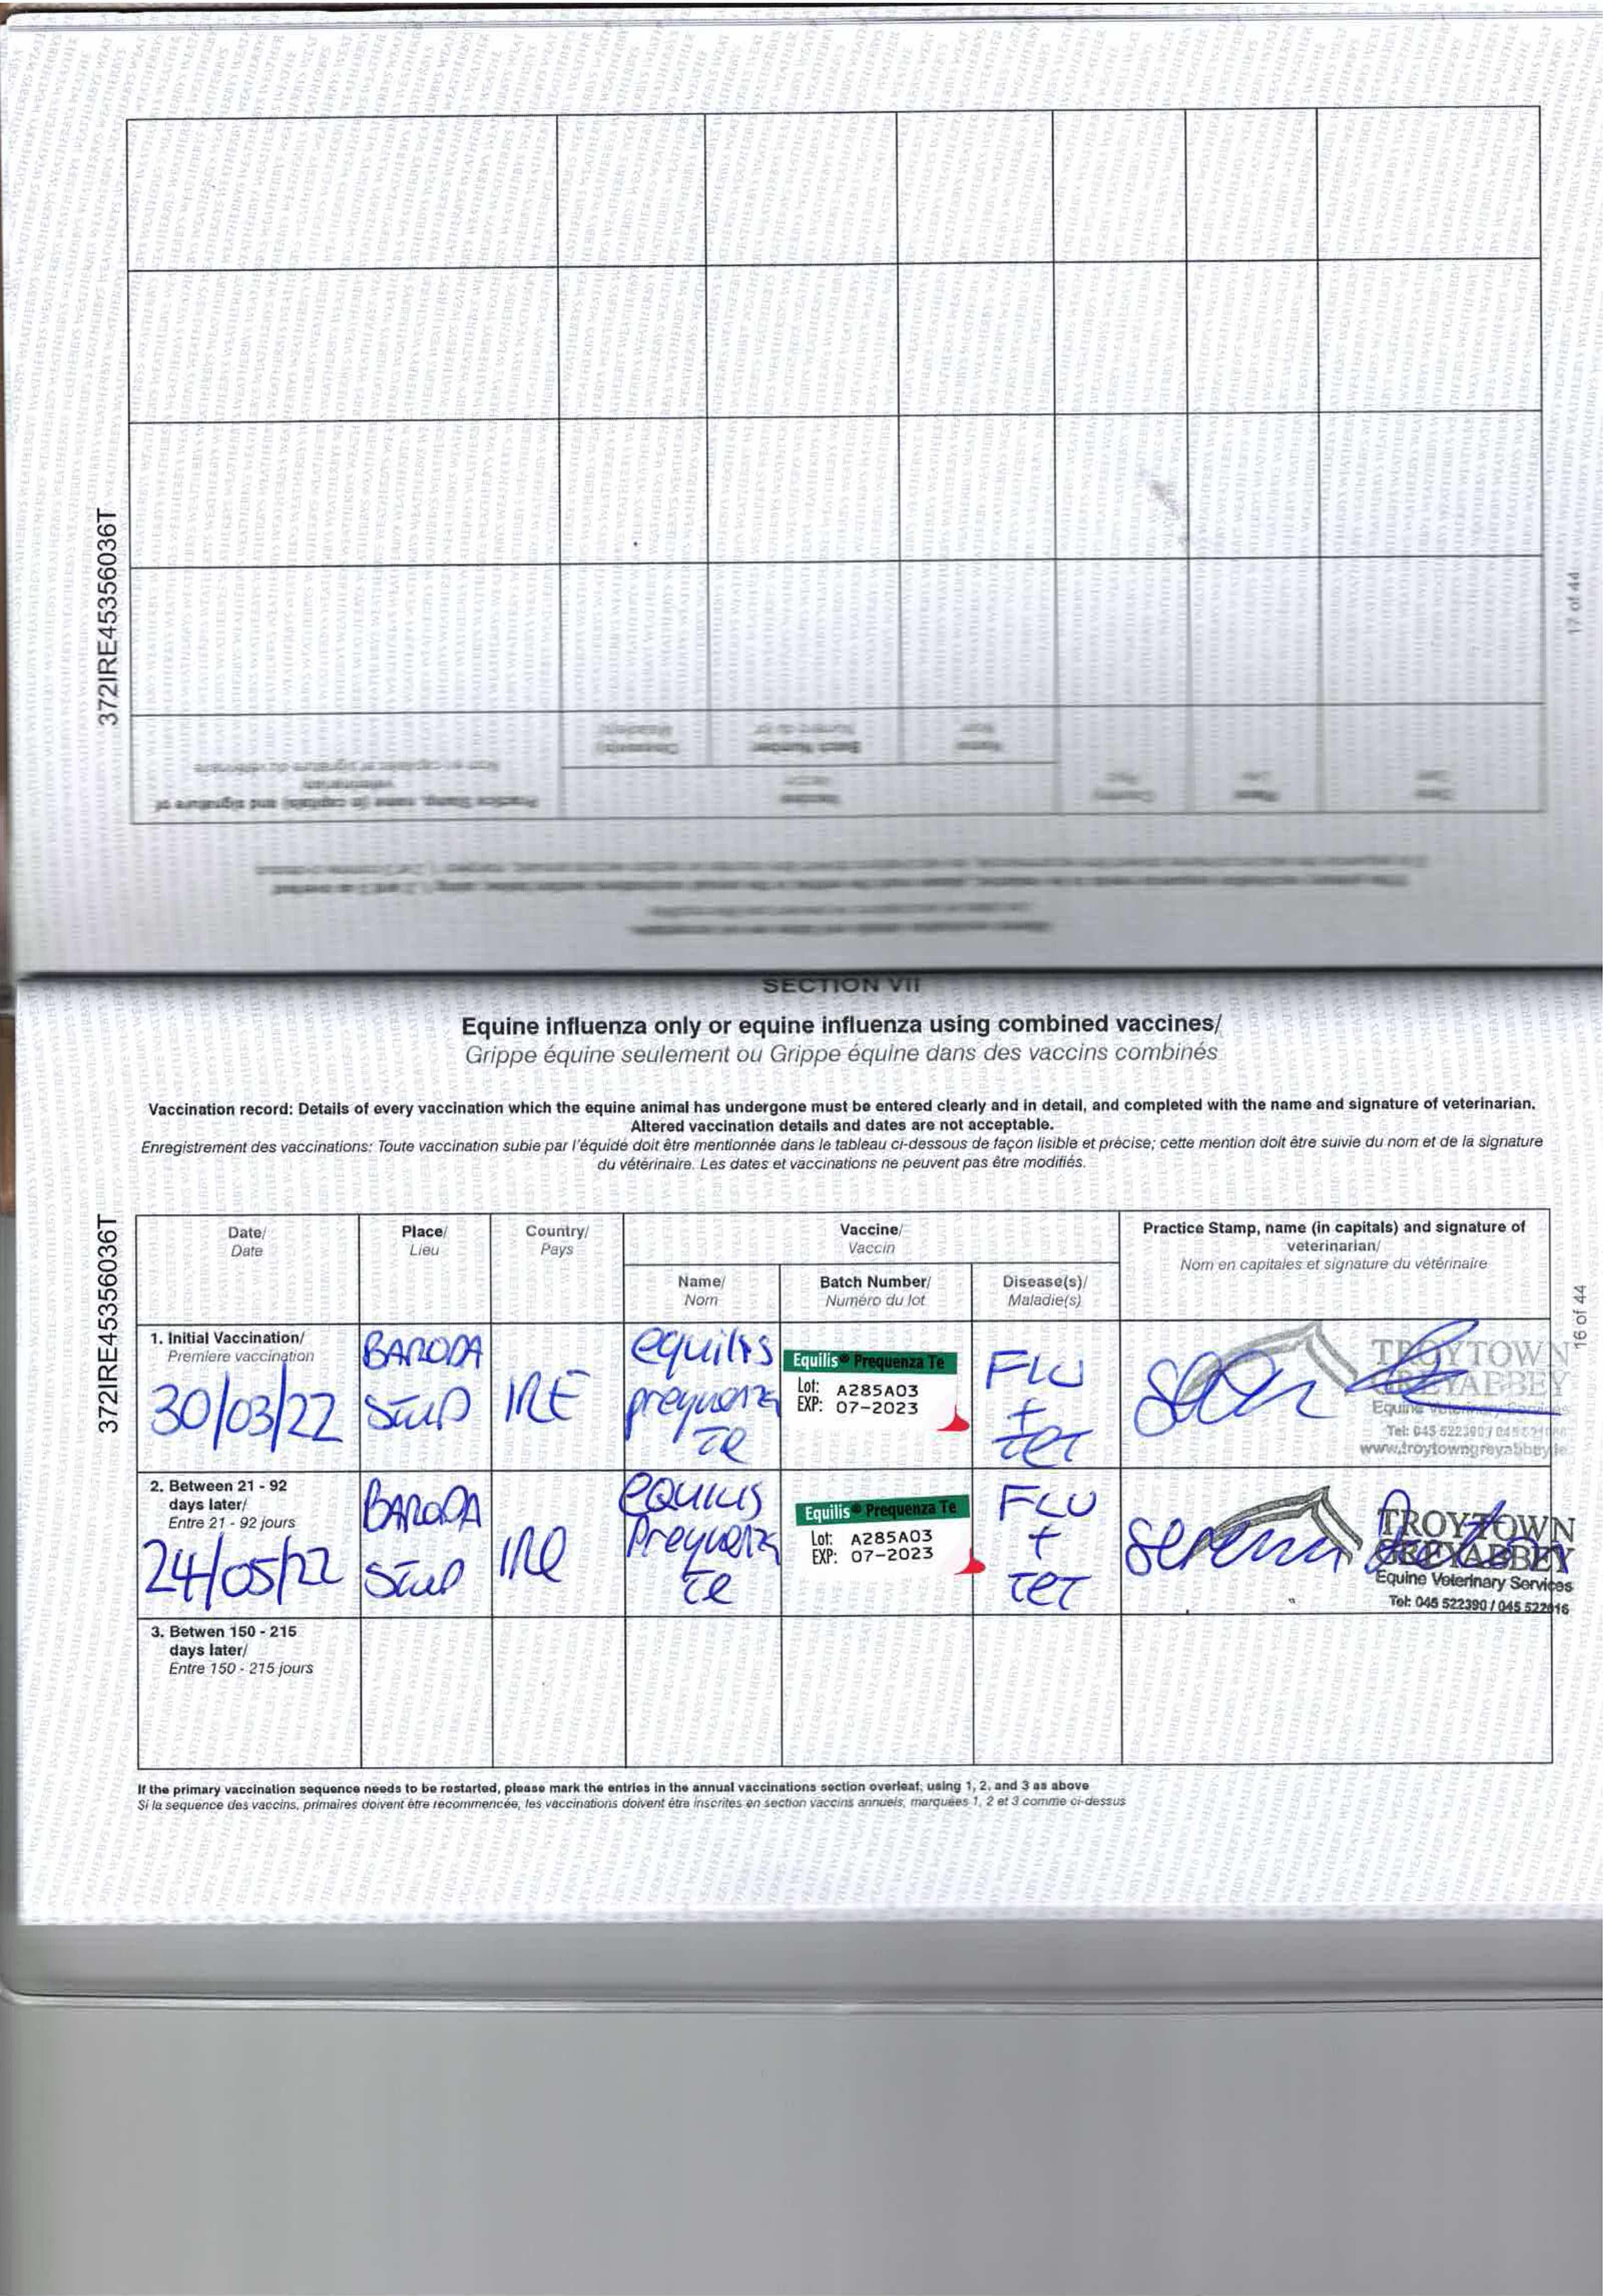 372IRE45356036T
17 of 44
Practice Stamp, name (in capitals) and signature of
veterinarian/
Nom en capitales et signature du vétérinaire
Vaccine/
Batch Number/
Name/
Country/
Place/
Date/
SECTION VII
Equine influenza only or equine influenza using combined vaccines/
Grippe équine seulement ou Grippe équine dans des vaccins combinés
Vaccination record: Details of every vaccination which the equine animal has undergone must be entered clearly and in detail, and completed with the name and signature of veterinarian.
Altered vaccination details and dates are not acceptable.
Enregistrement des vaccinations: Toute vaccination subie par l'équidé doit être mentionnée dans le tableau ci-dessous de façon lisible et précise; cette mention doit être suivie du nom et de la signature
du vétérinaire. Les dates et vaccinations ne peuvent pas être modifiés.
372IRE45356036T
16 of 44
Date/
Date
Place/
Lieu
Country/
Pays
Vaccine/
Vaccin
Name/
Nom
Batch Number/
Numéro du lot
Disease(s)/
Maladie(s)
Practice Stamp, name (in capitals) and signature of
veterinarian/
Nom en capitales et signature du vétérinaire
1. Initial Vaccination/
Premiere vaccination
30/03/22
BARODA
STUD
IRE
equilis
prequenza
TE
Equilis® Prequenza Te
Lot: A285A03
EXP: 07-2023
FLU
+
TET
TROYTOWN
GREYABBEY
Equine Veterinary Services
Tel: 045 522390 / 045
www.troytowngreyabbey.ie
2. Between 21 - 92
days later/
Entre 21 - 92 jours
24/05/22
BARODA
STUD
IRE
EQUILIS
Prequenza
te
Equilis® Prequenza Te
Lot: A285A03
EXP: 07-2023
FLU
+
TET
serena
TROYTOWN
GREYABBEY
Equine Veterinary Services
Tel: 045 522390 / 045 522616
3. Betwen 150 - 215
days later/
Entre 150 - 215 jours
If the primary vaccination sequence needs to be restarted, please mark the entries in the annual vaccinations section overleaf, using 1, 2, and 3 as above
Si la sequence des vaccins, primaires doivent être recommencée, les vaccinations doivent être inscrites en section vaccins annuels, marquées 1, 2 et 3 comme ci-dessus